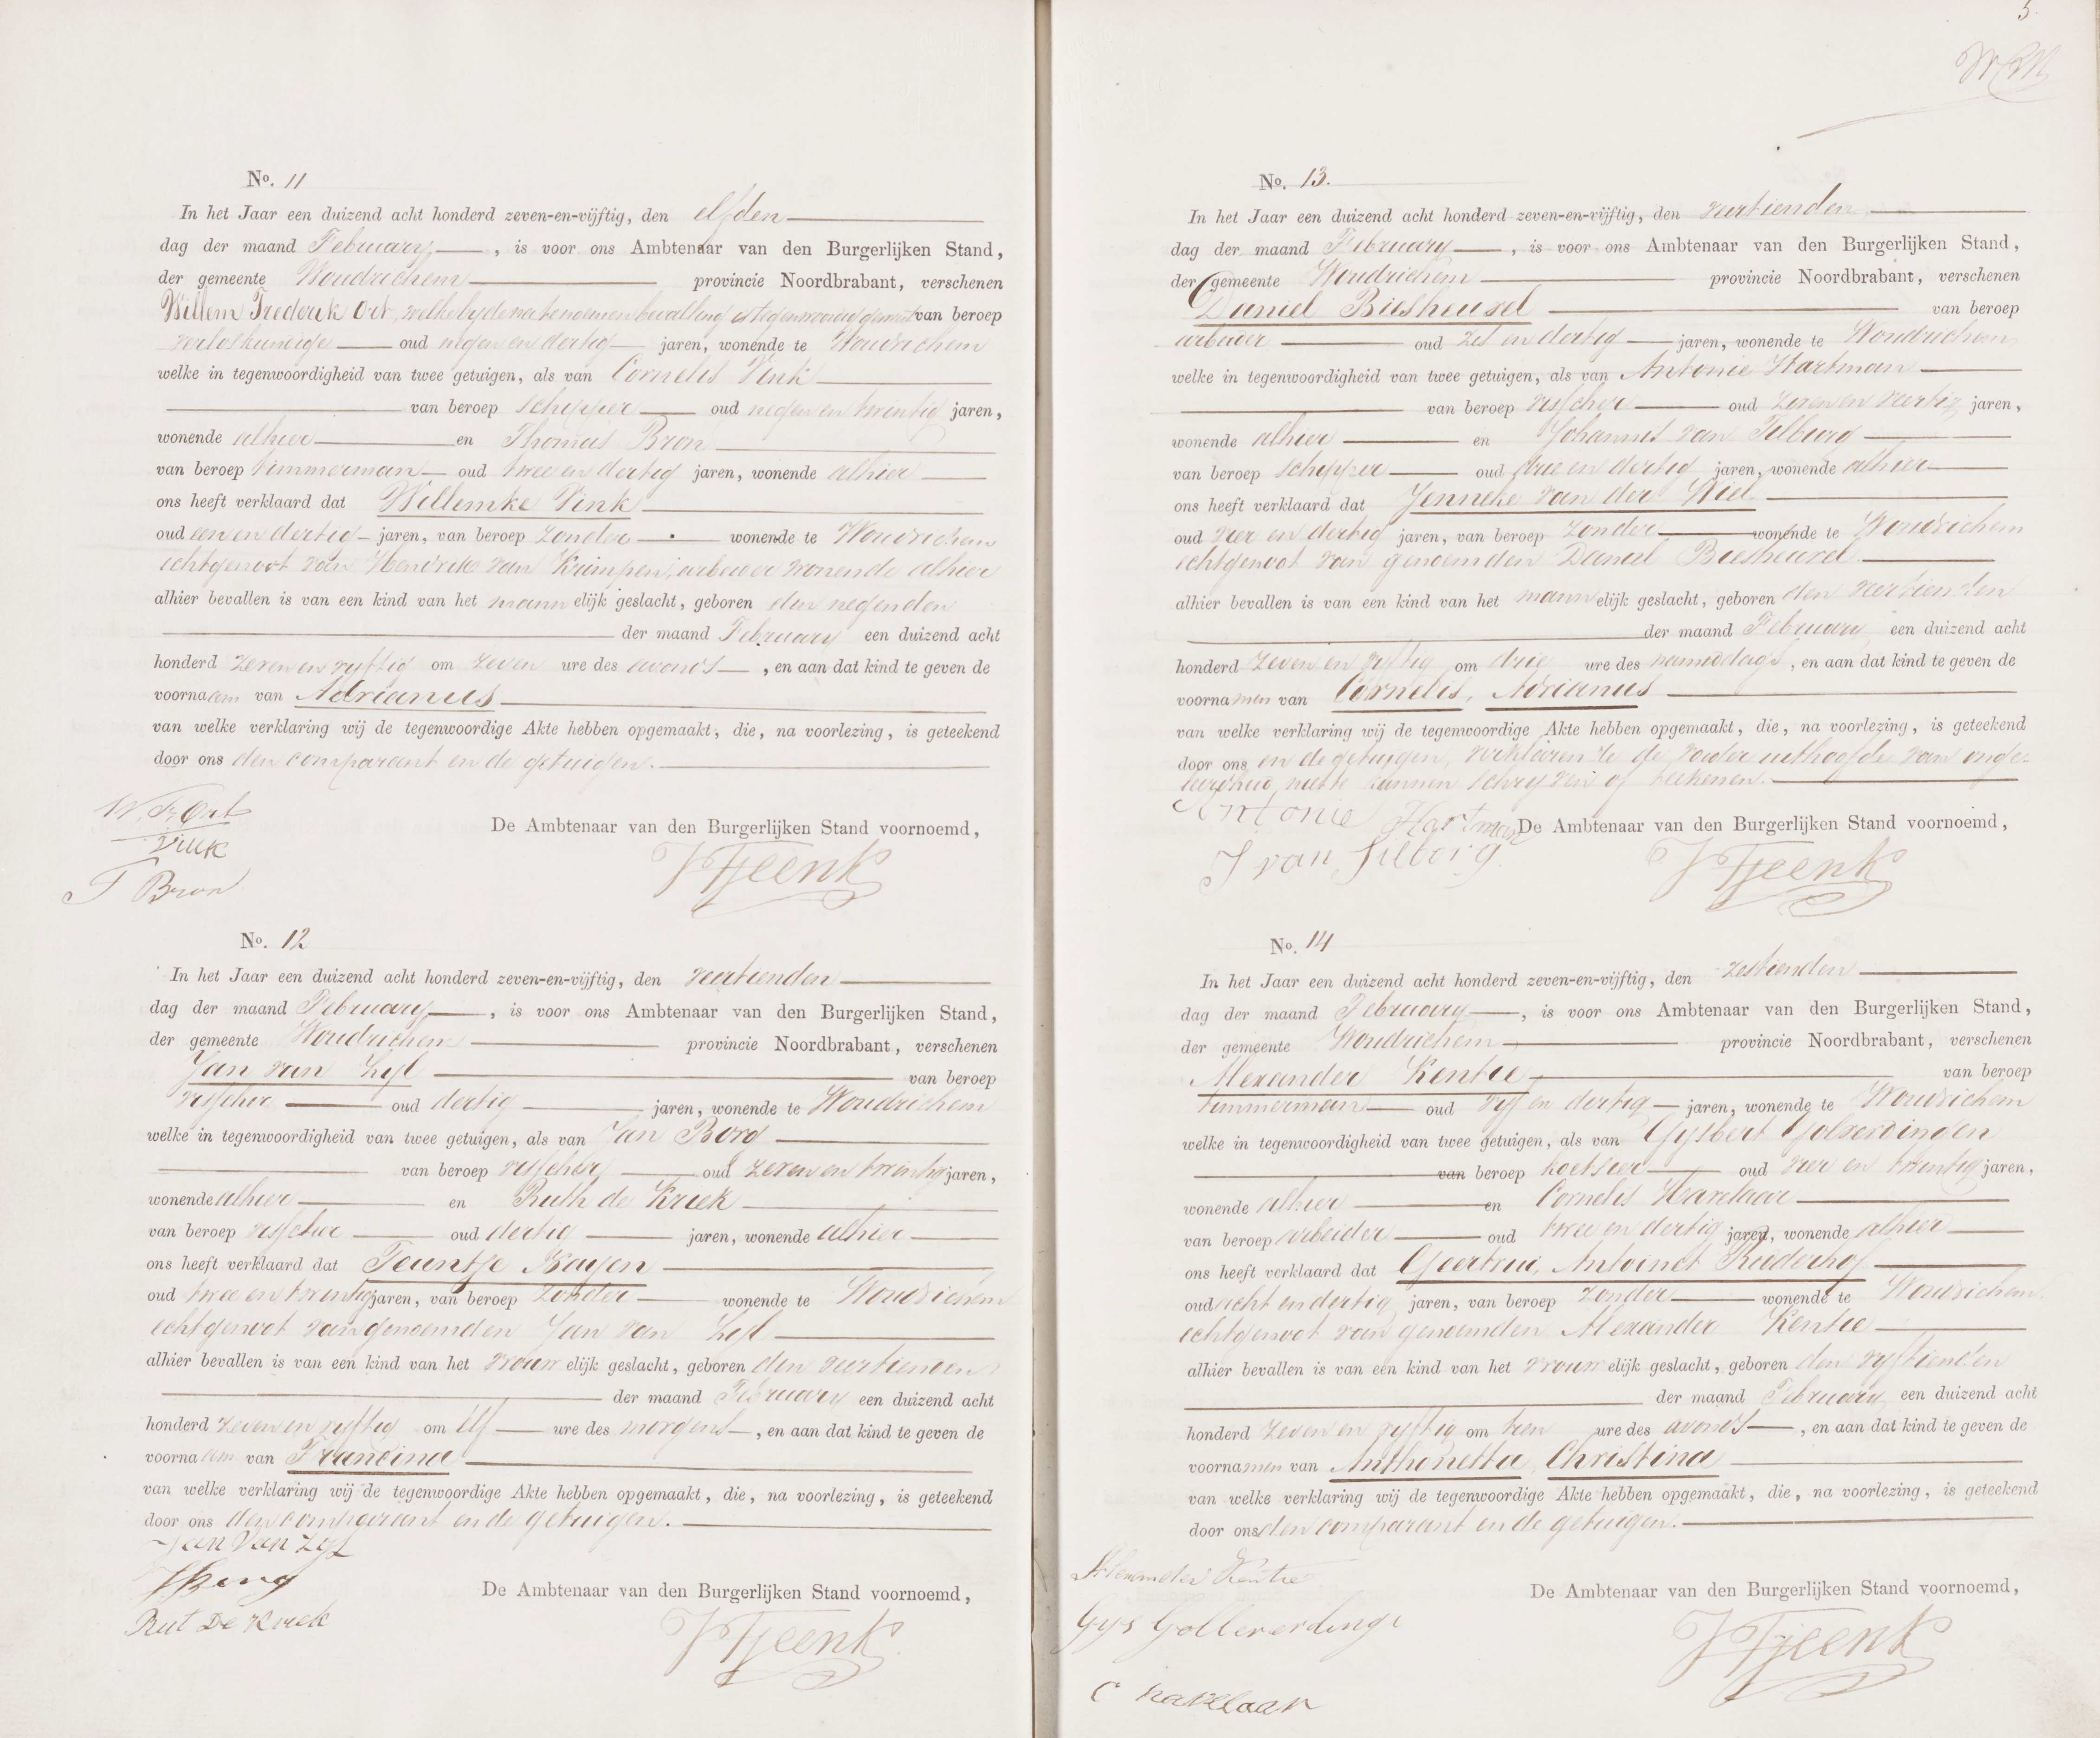 No. 11
In het Jaar een duizend acht honderd zeven-en-vijftig, den elfden
dag der maand February, is voor ons Ambtenaar van den Burgerlijken Stand,
der gemeente Woudrichem provincie Noordbrabant, verschenen
Willem Frederik Ort, welke by de natenoemen bevalling is tegenwoordig geweest van beroep
verloskundige oud negen en dertig jaren, wonende te Woudrichem
welke in tegenwoordigheid van twee getuigen, als van Cornelis Vink
van beroep schipper oud negen en twintig jaren,
wonende alhier en Thomas Bron
van beroep timmerman oud twee en dertig jaren, wonende alhier
ons heeft verklaard dat Willemke Vink
oud een en dertig jaren, van beroep zonder wonende te Woudrichem
echtgenoot van Hendrik van Krimpen, arbeider wonende alhier
alhier bevallen is van een kind van het mannelijk geslacht, geboren den negenden
der maand February een duizend acht
honderd zeven en vyftig om zeven ure des avonds, en aan dat kind te geven de
voornaam van Adrianus
van welke verklaring wij de tegenwoordige Akte hebben opgemaakt, die, na voorlezing, is geteekend
door ons den comparant en de getuigen.
W. Fr. Ort
Vink
T Bron
De Ambtenaar van den Burgerlijken Stand voornoemd,
Tjeenk
No. 12
In het Jaar een duizend acht honderd zeven-en-vijftig, den veertienden
dag der maand February, is voor ons Ambtenaar van den Burgerlijken Stand,
der gemeente Woudrichem provincie Noordbrabant, verschenen
Jan van Zyl van beroep
visscher oud dertig jaren, wonende te Woudrichem
welke in tegenwoordigheid van twee getuigen, als van Jan Borg
van beroep visscher oud zeven en twintig jaren,
wonende alhier en Ruth de Kriek
van beroep visscher oud dertig jaren, wonende alhier
ons heeft verklaard dat Teuntje Kayen
oud twee en twintig jaren, van beroep zonder wonende te Woudrichem
echtgenoot van genoemden Jan van Zyl
alhier bevallen is van een kind van het vrouwelijk geslacht, geboren den veertienden
der maand February een duizend acht
honderd zeven en vyftig om elf ure des morgens, en aan dat kind te geven de
voornaam van Francina
van welke verklaring wij de tegenwoordige Akte hebben opgemaakt, die, na voorlezing, is geteekend
door ons den comparant en de getuigen.
Jan van Zyl
J Borg
Rut De Kriek
De Ambtenaar van den Burgerlijken Stand voornoemd,
Tjeenk
5.
No. 13.
In het Jaar een duizend acht honderd zeven-en-vijftig, den veertienden
dag der maand February, is voor ons Ambtenaar van den Burgerlijken Stand,
der gemeente Woudrichem provincie Noordbrabant, verschenen
Daniel Biesheuvel van beroep
arbeider oud zes en dertig jaren, wonende te Woudrichem
welke in tegenwoordigheid van twee getuigen, als van Antonie Hartman
van beroep visscher oud zeven en veertig jaren,
wonende alhier en Johannes van Tilburg
van beroep schipper oud drie en dertig jaren, wonende alhier
ons heeft verklaard dat Jenneke van der Wiel
oud vier en dertig jaren, van beroep zonder wonende te Woudrichem
echtgenoot van genoemden Daniel Biesheuvel
alhier bevallen is van een kind van het mannelijk geslacht, geboren den veertienden
der maand February een duizend acht
honderd zeven en vyftig om drie ure des namiddags, en aan dat kind te geven de
voornamen van Cornelis, Adrianus
van welke verklaring wij de tegenwoordige Akte hebben opgemaakt, die, na voorlezing, is geteekend
door ons en de getuigen, verklarende de vader uithoofde van onge-
leerdheid niet te kunnen schryven of teekenen.
Antonie Hartman
J van Tilborg
De Ambtenaar van den Burgerlijken Stand voornoemd,
Tjeenk
No. 14
In het Jaar een duizend acht honderd zeven-en-vijftig, den zestienden
dag der maand February, is voor ons Ambtenaar van den Burgerlijken Stand,
der gemeente Woudrichem provincie Noordbrabant, verschenen
Alexander Kentie van beroep
timmerman oud vyf en dertig jaren, wonende te Woudrichem
welke in tegenwoordigheid van twee getuigen, als van Gysbert Golverdingen
van beroep koetsier oud vier en twintig jaren,
wonende alhier en Cornelis Havelaar
van beroep arbeider oud twee en dertig jaren, wonende alhier
ons heeft verklaard dat Geertrui, Antoinet Ruderhof
oud acht en dertig jaren, van beroep zonder wonende te Woudrichem
echtgenoot van genoemden Alexander Kentie
alhier bevallen is van een kind van het vrouwelijk geslacht, geboren den vyftienden
der maand February een duizend acht
honderd zeven en vyftig om tien ure des avonds, en aan dat kind te geven de
voornamen van Anthonetta, Christina
van welke verklaring wij de tegenwoordige Akte hebben opgemaakt, die, na voorlezing, is geteekend
door ons den comparant en de getuigen.
Alexander Kentie
Gys Golleverdinge
C Havelaar
De Ambtenaar van den Burgerlijken Stand voornoemd,
Tjeenk